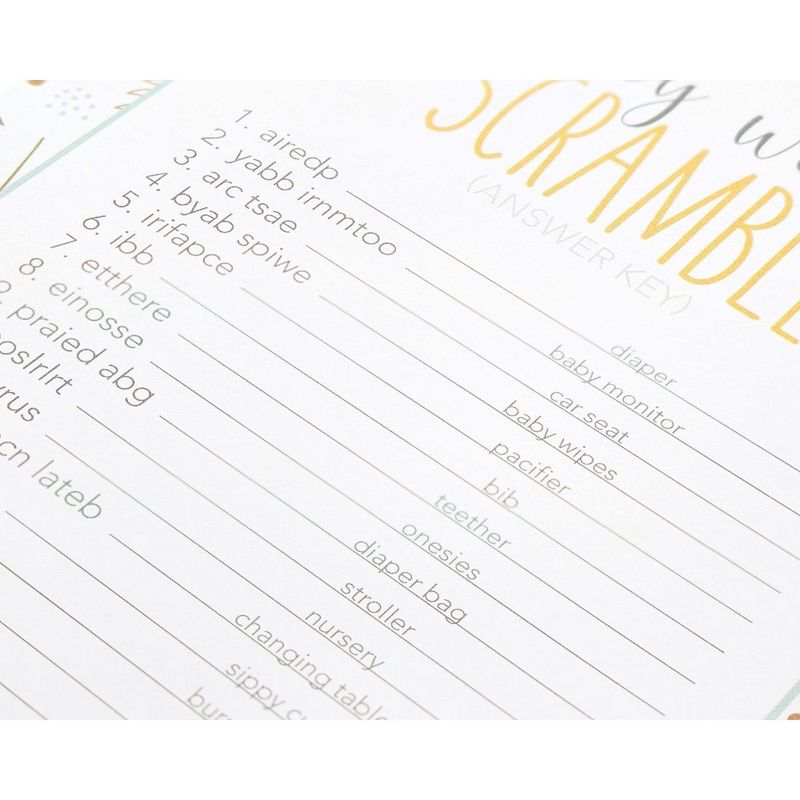 SCRAMBLE
(ANSWER KEY)
1. airedp diaper
2. yabb irnmtoo baby monitor
3. arc tsae car seat
4. byab spiwe baby wipes
5. irifapce pacifier
6. ibb bib
7. etthere teether
8. einosse onesies
praied abg diaper bag
stroller
nursery
lateb changing table
sippy